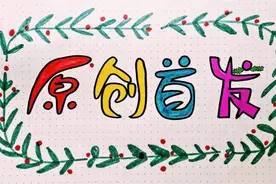 原创首发